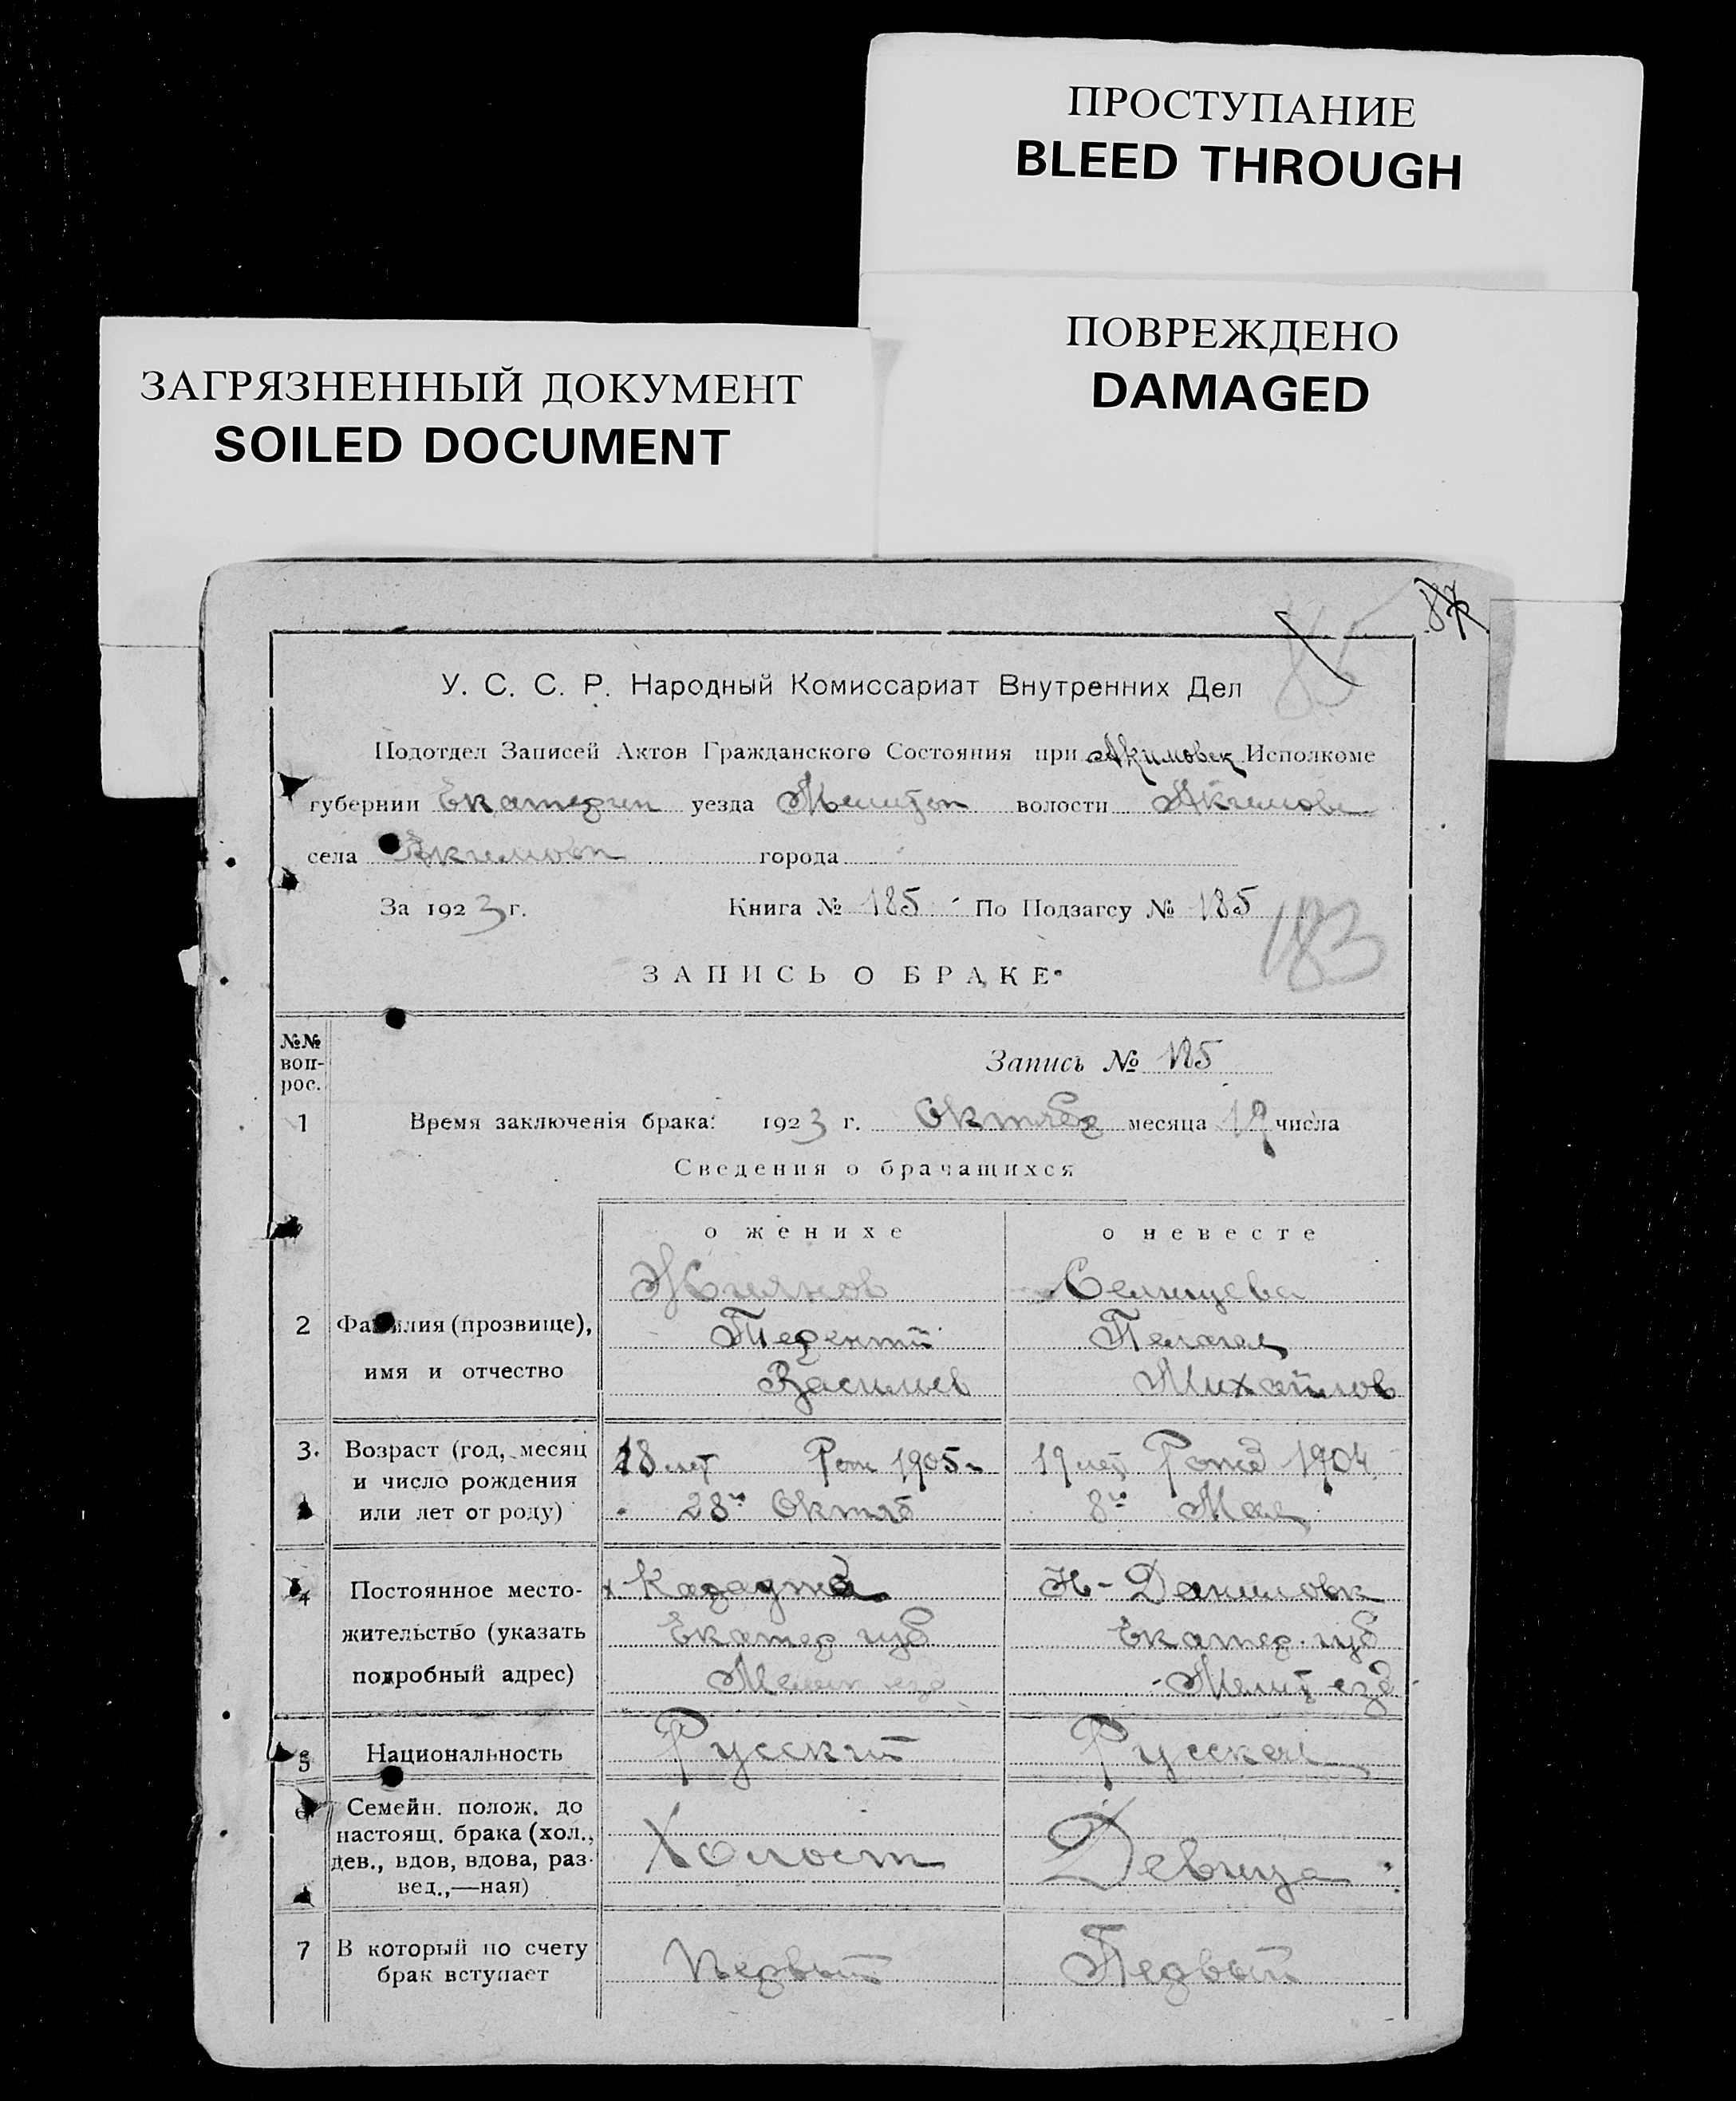 ПРОСТУПАНИЕ
BLEED THROUGH
ПОВРЕЖДЕНО
DAMAGED
ЗАГРЯЗНЕННЫЙ ДОКУМЕНТ
SOILED DOCUMENT
87
У. С. С. Р. Народный Комиссариат Внутренних Дел
Подотдел Записей Актов Гражданского Состояния при Акимовск Исполкоме
губернии Екатерин уезда Мелитоп волости Акимовс
села Акимовк города
За 1923 г. Книга № 185 По Подзагсу № 185
183
ЗАПИСЬ О БРАКЕ
№№ воп-рос.
Запись № 185
1 Время заключенія брака: 1923 г. Октябр месяца 19 числа
Сведения о брачащихся
о женихе о невесте
2 Фамилия (прозвище), имя и отчество
Терентий Пелагея
Васильев Михайлов
3. Возраст (год, месяц и число рождения или лет от роду)
18 лет Рож 1905 19 лет Рожд 1904
28го Октяб 8го Мая
4 Постоянное место-жительство (указать подробный адрес)
Н-Даниловк
Екатер губ Екатер. губ
Мелит уезд Мелит уезд
5 Национальность Русский Русская
6 Семейн. полож. до настоящ. брака (хол., дев., вдов, вдова, раз-вед.,—ная) Холост Девица
7 В который по счету брак вступает Первый Первый